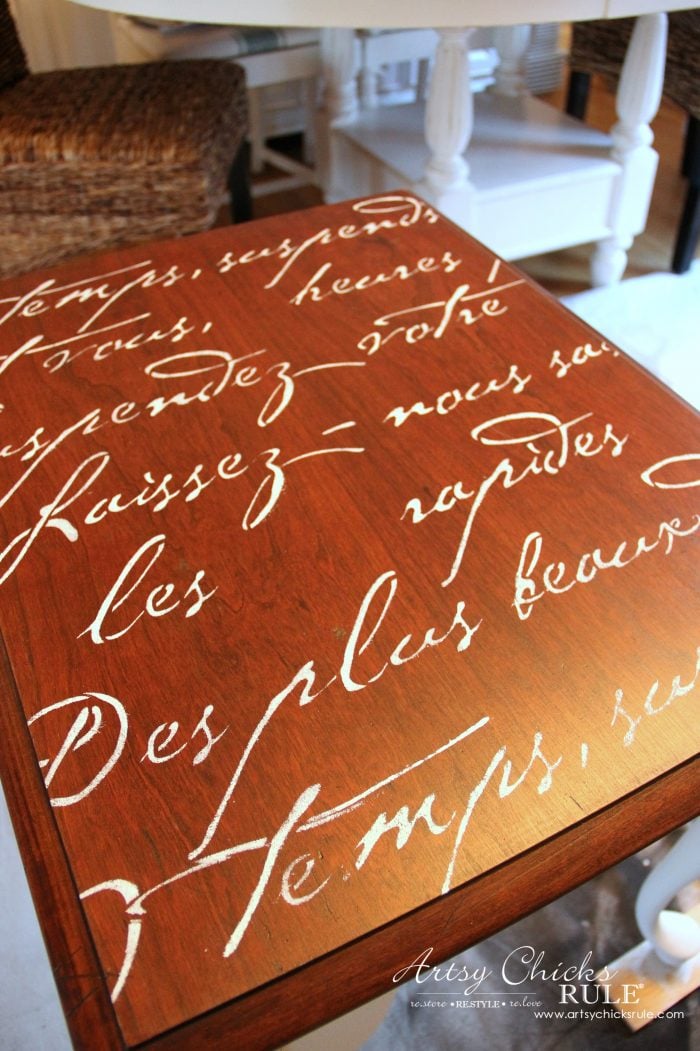 temps, suspends
t vous, heures !
uspendez votre
Laissez-nous sa
les rapides
Des plus beaux
temps, sus
Artsy Chicks
RULE
re.store • RE.STYLE • re.love
www.artsychicksrule.com